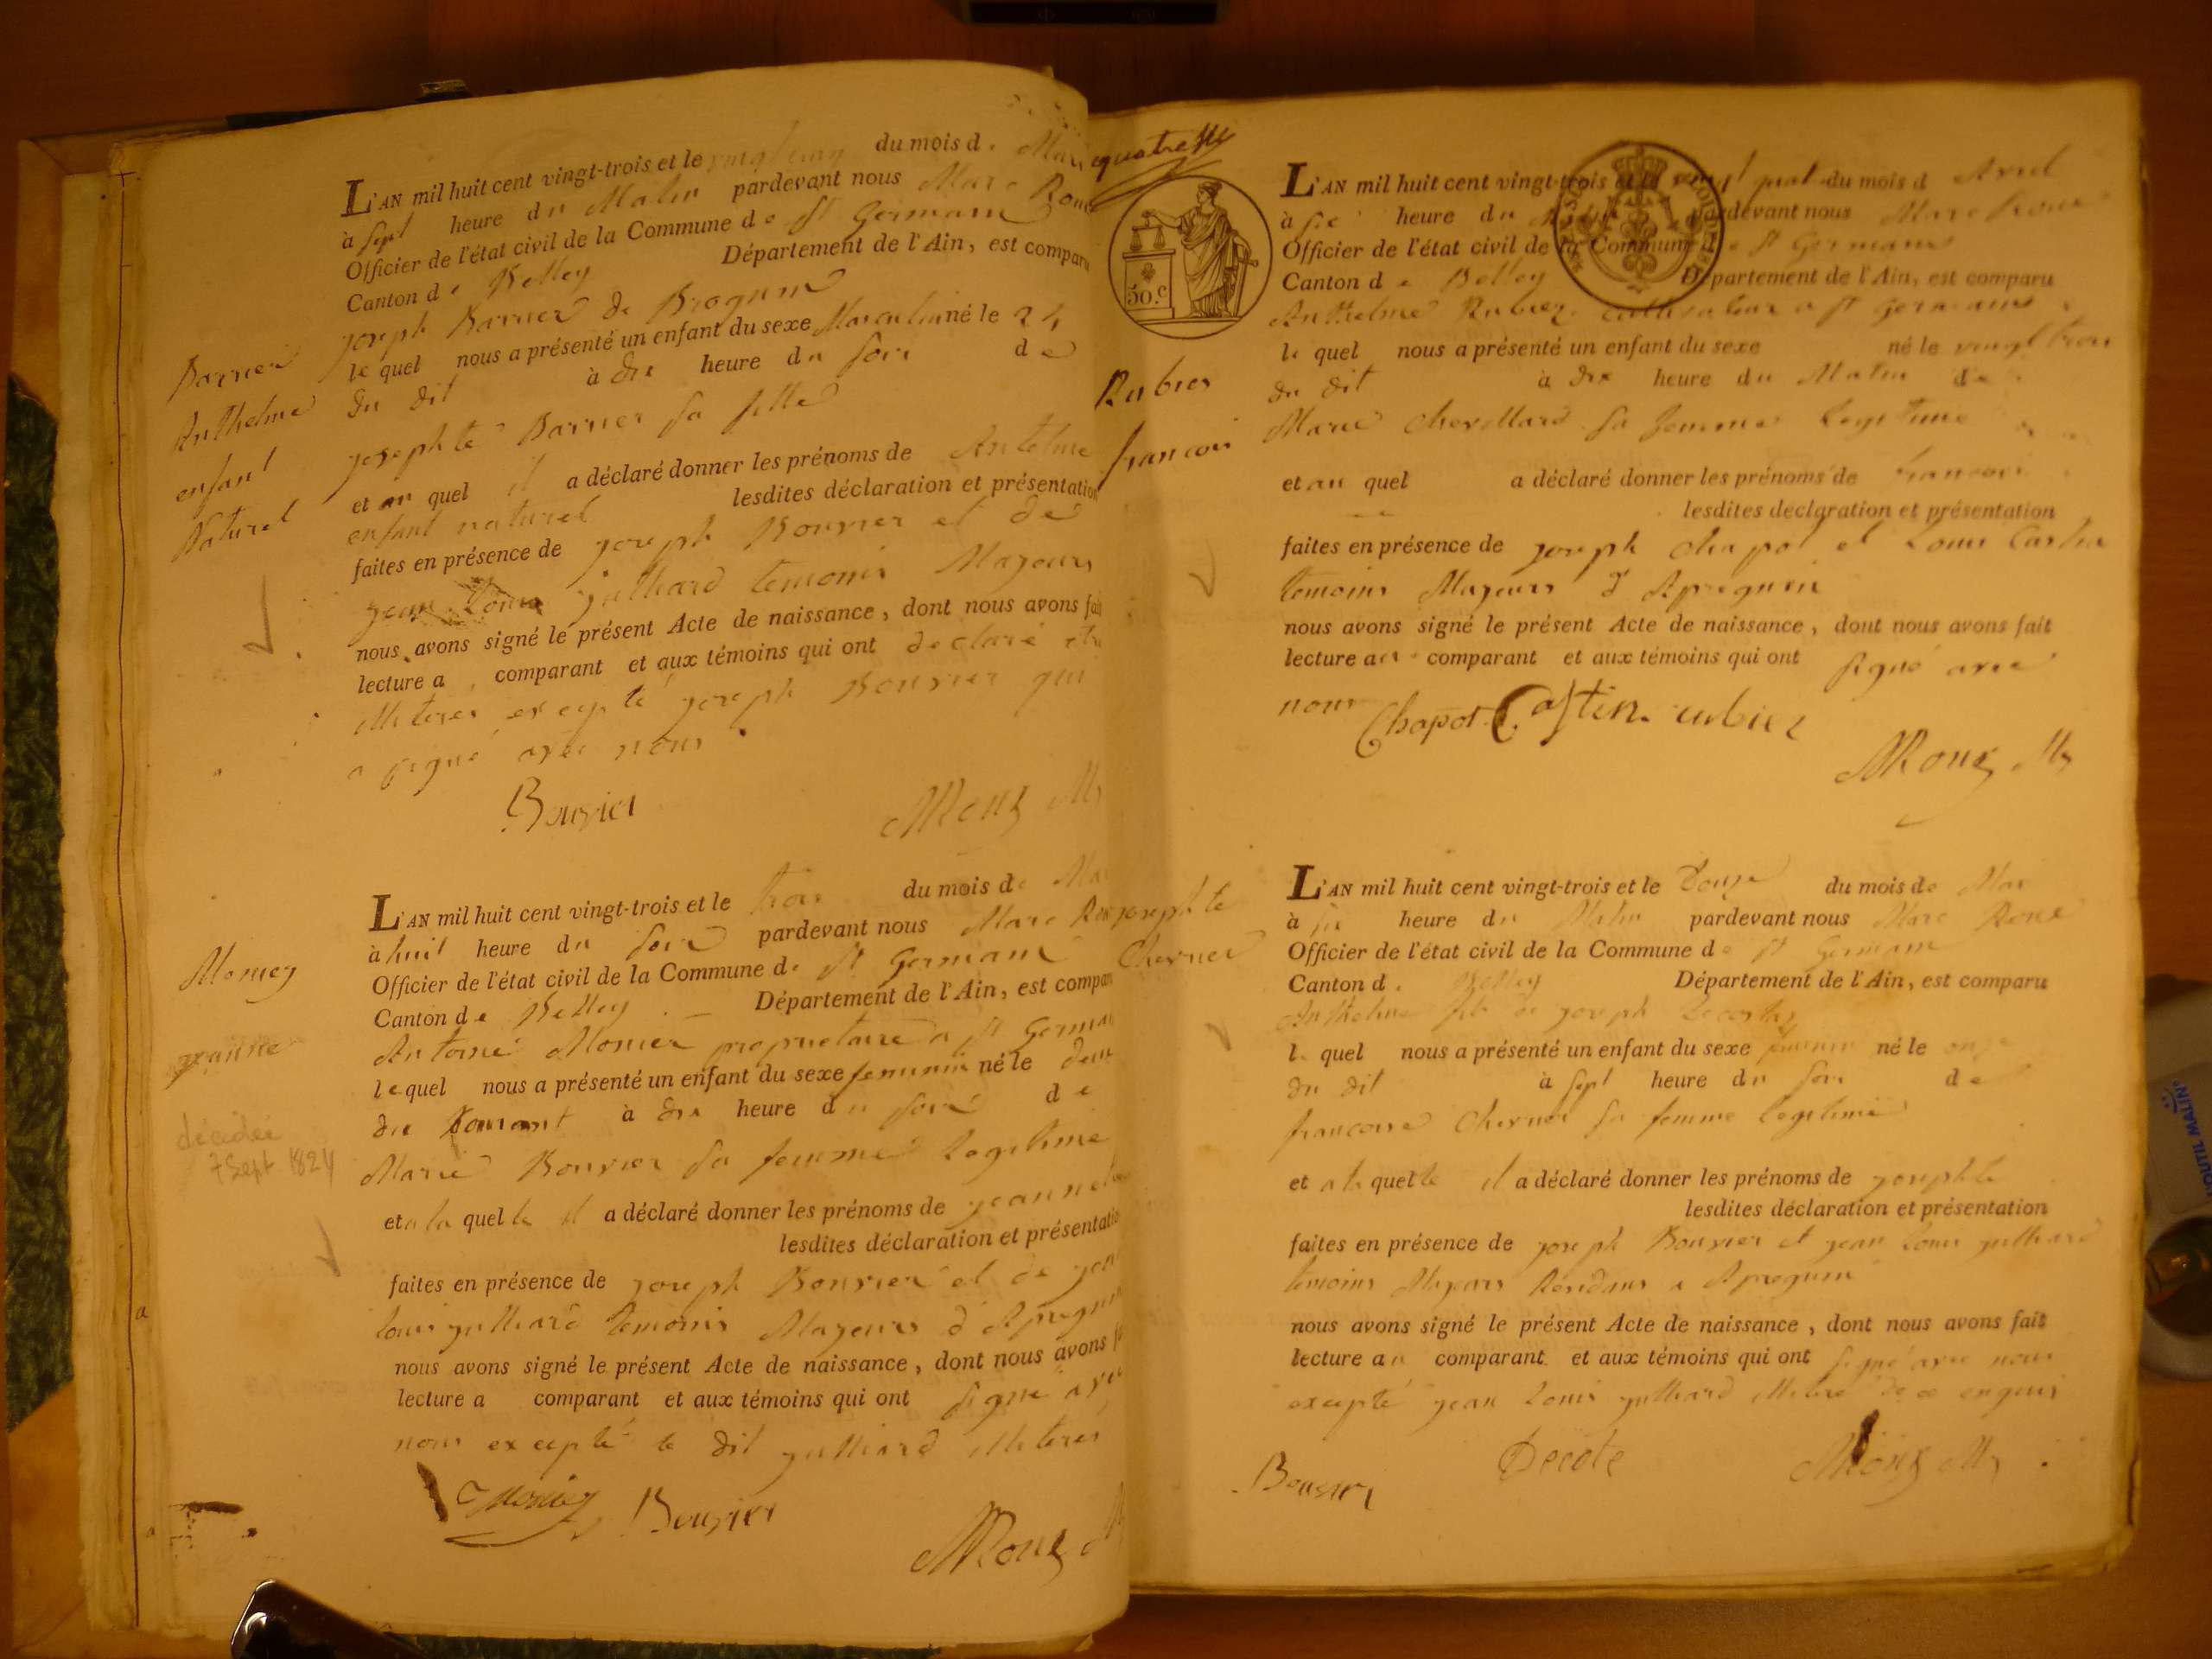 L'AN mil huit cent vingt-trois et le vingt cinq du mois d. Mars
à sept heure du Matin pardevant nous Marc Roux
Officier de l'état civil de la Commune de St Germain
Canton de Belley Département de l'Ain, est comparu
joseph Barner de Brognin
lequel nous a présenté un enfant du sexe Masculin né le 24
du dit à dix heure du soir de
josephte Barner sa fille
et au quel il a déclaré donner les prénoms de Antelme
enfant naturel lesdites déclaration et présentation
faites en présence de joseph Bouvier et de
jean Louis julliard temoins Majeurs
nous avons signé le présent Acte de naissance, dont nous avons fait
lecture a comparant et aux témoins qui ont declaré etre
illiteres excepté joseph Bouvier qui
a signé avec nous
Bouvier MRoux
Barner
Anthelme
enfant
Naturel
L'AN mil huit cent vingt-trois et le trois du mois de
à huit heure du soir pardevant nous Marc
Officier de l'état civil de la Commune de St Germain
Canton de Belley Département de l'Ain, est compar
Antoine Monier proprietaire a St Germa
lequel nous a présenté un enfant du sexe feminin né le deux
du Courant à dix heure du soir de
Marie Bouvier sa femme legitime
et a la quelle il a déclaré donner les prénoms de jeannete
lesdites déclaration et présentatio
faites en présence de joseph Bouvier et de jean
louis julliard temoins Majeurs d Apregnin
nous avons signé le présent Acte de naissance, dont nous avons f
lecture a comparant et aux témoins qui ont signe avec
nous excepté le dit julliard illiteres
Bouvier MRoux
décédée
7 Sept 1824
quatre
50.c
Rubier
francois
L'AN mil huit cent vingt-trois et le vingt quat. du mois d Avril
à six heure du pardevant nous Marc Roux
Officier de l'état civil de la Commune de St Germain
Canton de Belley Département de l'Ain, est comparu
Anthelme Rubier cultivateur a St Germain
lequel nous a présenté un enfant du sexe né le vingt trois
du dit à dix heure du Matin de
Marie Chevillard sa femme legitime
et au quel a déclaré donner les prénoms de francois
lesdites déclaration et présentation
faites en présence de joseph Chapot et Louis Castin
temoins Majeurs d Apregnin
nous avons signé le présent Acte de naissance, dont nous avons fait
lecture au comparant et aux témoins qui ont signé avec
nous
Chapot Castin rubier
MRoux
josephte
Cherner
L'AN mil huit cent vingt-trois et le Douze du mois de Mai
à six heure du Matin pardevant nous Marc Roux
Officier de l'état civil de la Commune de St Germain
Canton d. Belley Département de l'Ain, est comparu
Anthelme fils de joseph
lequel nous a présenté un enfant du sexe feminin né le onze
du dit à sept heure du soir de
francoise Cherner sa femme legitime
et a la quelle il a déclaré donner les prénoms de josephte
lesdites déclaration et présentation
faites en présence de joseph Bouvier et jean Louis julliard
temoins Majeurs Residans a Apregnin
nous avons signé le présent Acte de naissance, dont nous avons fait
lecture au comparant et aux témoins qui ont signé avec nous
excepté jean Louis julliard illitere de ce enquis
Bouvier Decote MRoux